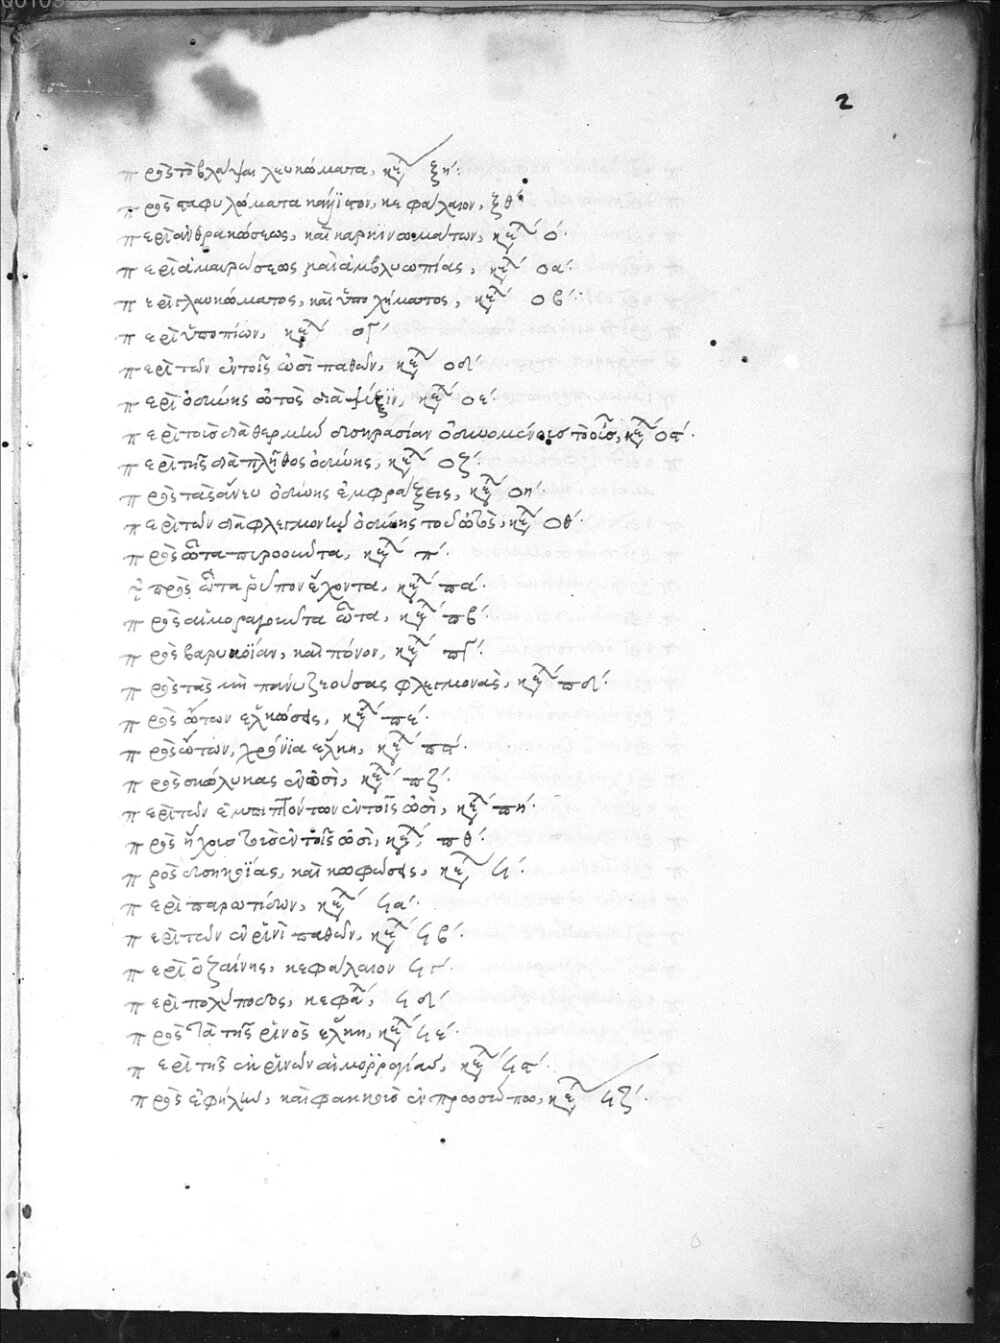 2
πρὸς τὸ βλάψαι λευκώματα, κεφ ξη΄.
πρὸς σταφυλώματα κεφάλαιον, ξθ΄
περὶ ἀνθρακώσεως, καὶ καρκινωμάτων, κεφ ο΄.
περὶ ἀμαυρώσεως καὶ ἀμβλυωπίας, κεφ οα΄.
περὶ γλαυκώματος, καὶ ὑποχύματος, κεφ οβ΄.
περὶ ὑποπίων, κεφ ογ΄
περὶ τῶν ἐν τοῖς ὠσὶ παθῶν, κεφ οδ΄
περὶ ὀδύνης ὠτὸς διὰ ψύξιν, κεφ οε΄.
περὶ τοῖς διὰ θερμὴν δισκρασίαν ὀδυωμένοις τὸ οὖς, κεφ οϛ΄.
περὶ τῆς διὰ πλῆθος ὀδύνης, κεφ οζ΄.
πρὸς τὰς ἄνευ ὀδύνης ἐμφράξεις, κεφ οη΄.
περὶ τῶν διὰ φλεγμονὴν ὀδύνης τοῦ ὠτὸς, κεφ οθ΄.
πρὸς ὦτα πυοροοῦντα, κεφ π΄.
πρὸς ὦτα ῥύπον ἔχοντα, κεφ πα΄.
πρὸς αἱμοραγοῦντα ὦτα, κεφ πβ΄.
πρὸς βαρυκοΐαν, καὶ πόνον, κεφ πγ΄.
πρὸς τὰς μὴ πάνυ ζεούσας φλεγμονὰς, κεφ πδ΄.
πρὸς ὤτων ἑλκώσεις, κεφ πε΄.
πρὸς ὤτων, χρόνια ἕλκη, κεφ πϛ΄.
πρὸς σκώλυκας ἐν ὠσὶ, κεφ πζ΄.
περὶ τῶν ἐμπιπτόντων ἐν τοῖς ὠσὶ, κεφ πη΄.
πρὸς ἤχους τοὺς ἐν τοῖς ὠσὶ, κεφ πθ΄.
πρὸς δισηκοΐας, καὶ κωφώσεις, κεφ ϟ΄.
περὶ παρωτίδων, κεφ ϟα΄.
περὶ τῶν ἐν ῥινὶ παθῶν, κεφ ϟβ΄.
περὶ ὀζαίνης, κεφάλαιον ϟγ΄.
περὶ πολύποδος, κεφα, ϟδ΄.
πρὸς τὰ τῆς ῥινὸς ἕλκη, κεφ ϟε΄.
περὶ τῆς ἐκ ῥινῶν αἱμορραγίας, κεφ ϟϛ΄.
πρὸς ἐφήλεις, καὶ φακοὺς ἐν προσώπω, κεφ ϟζ΄.